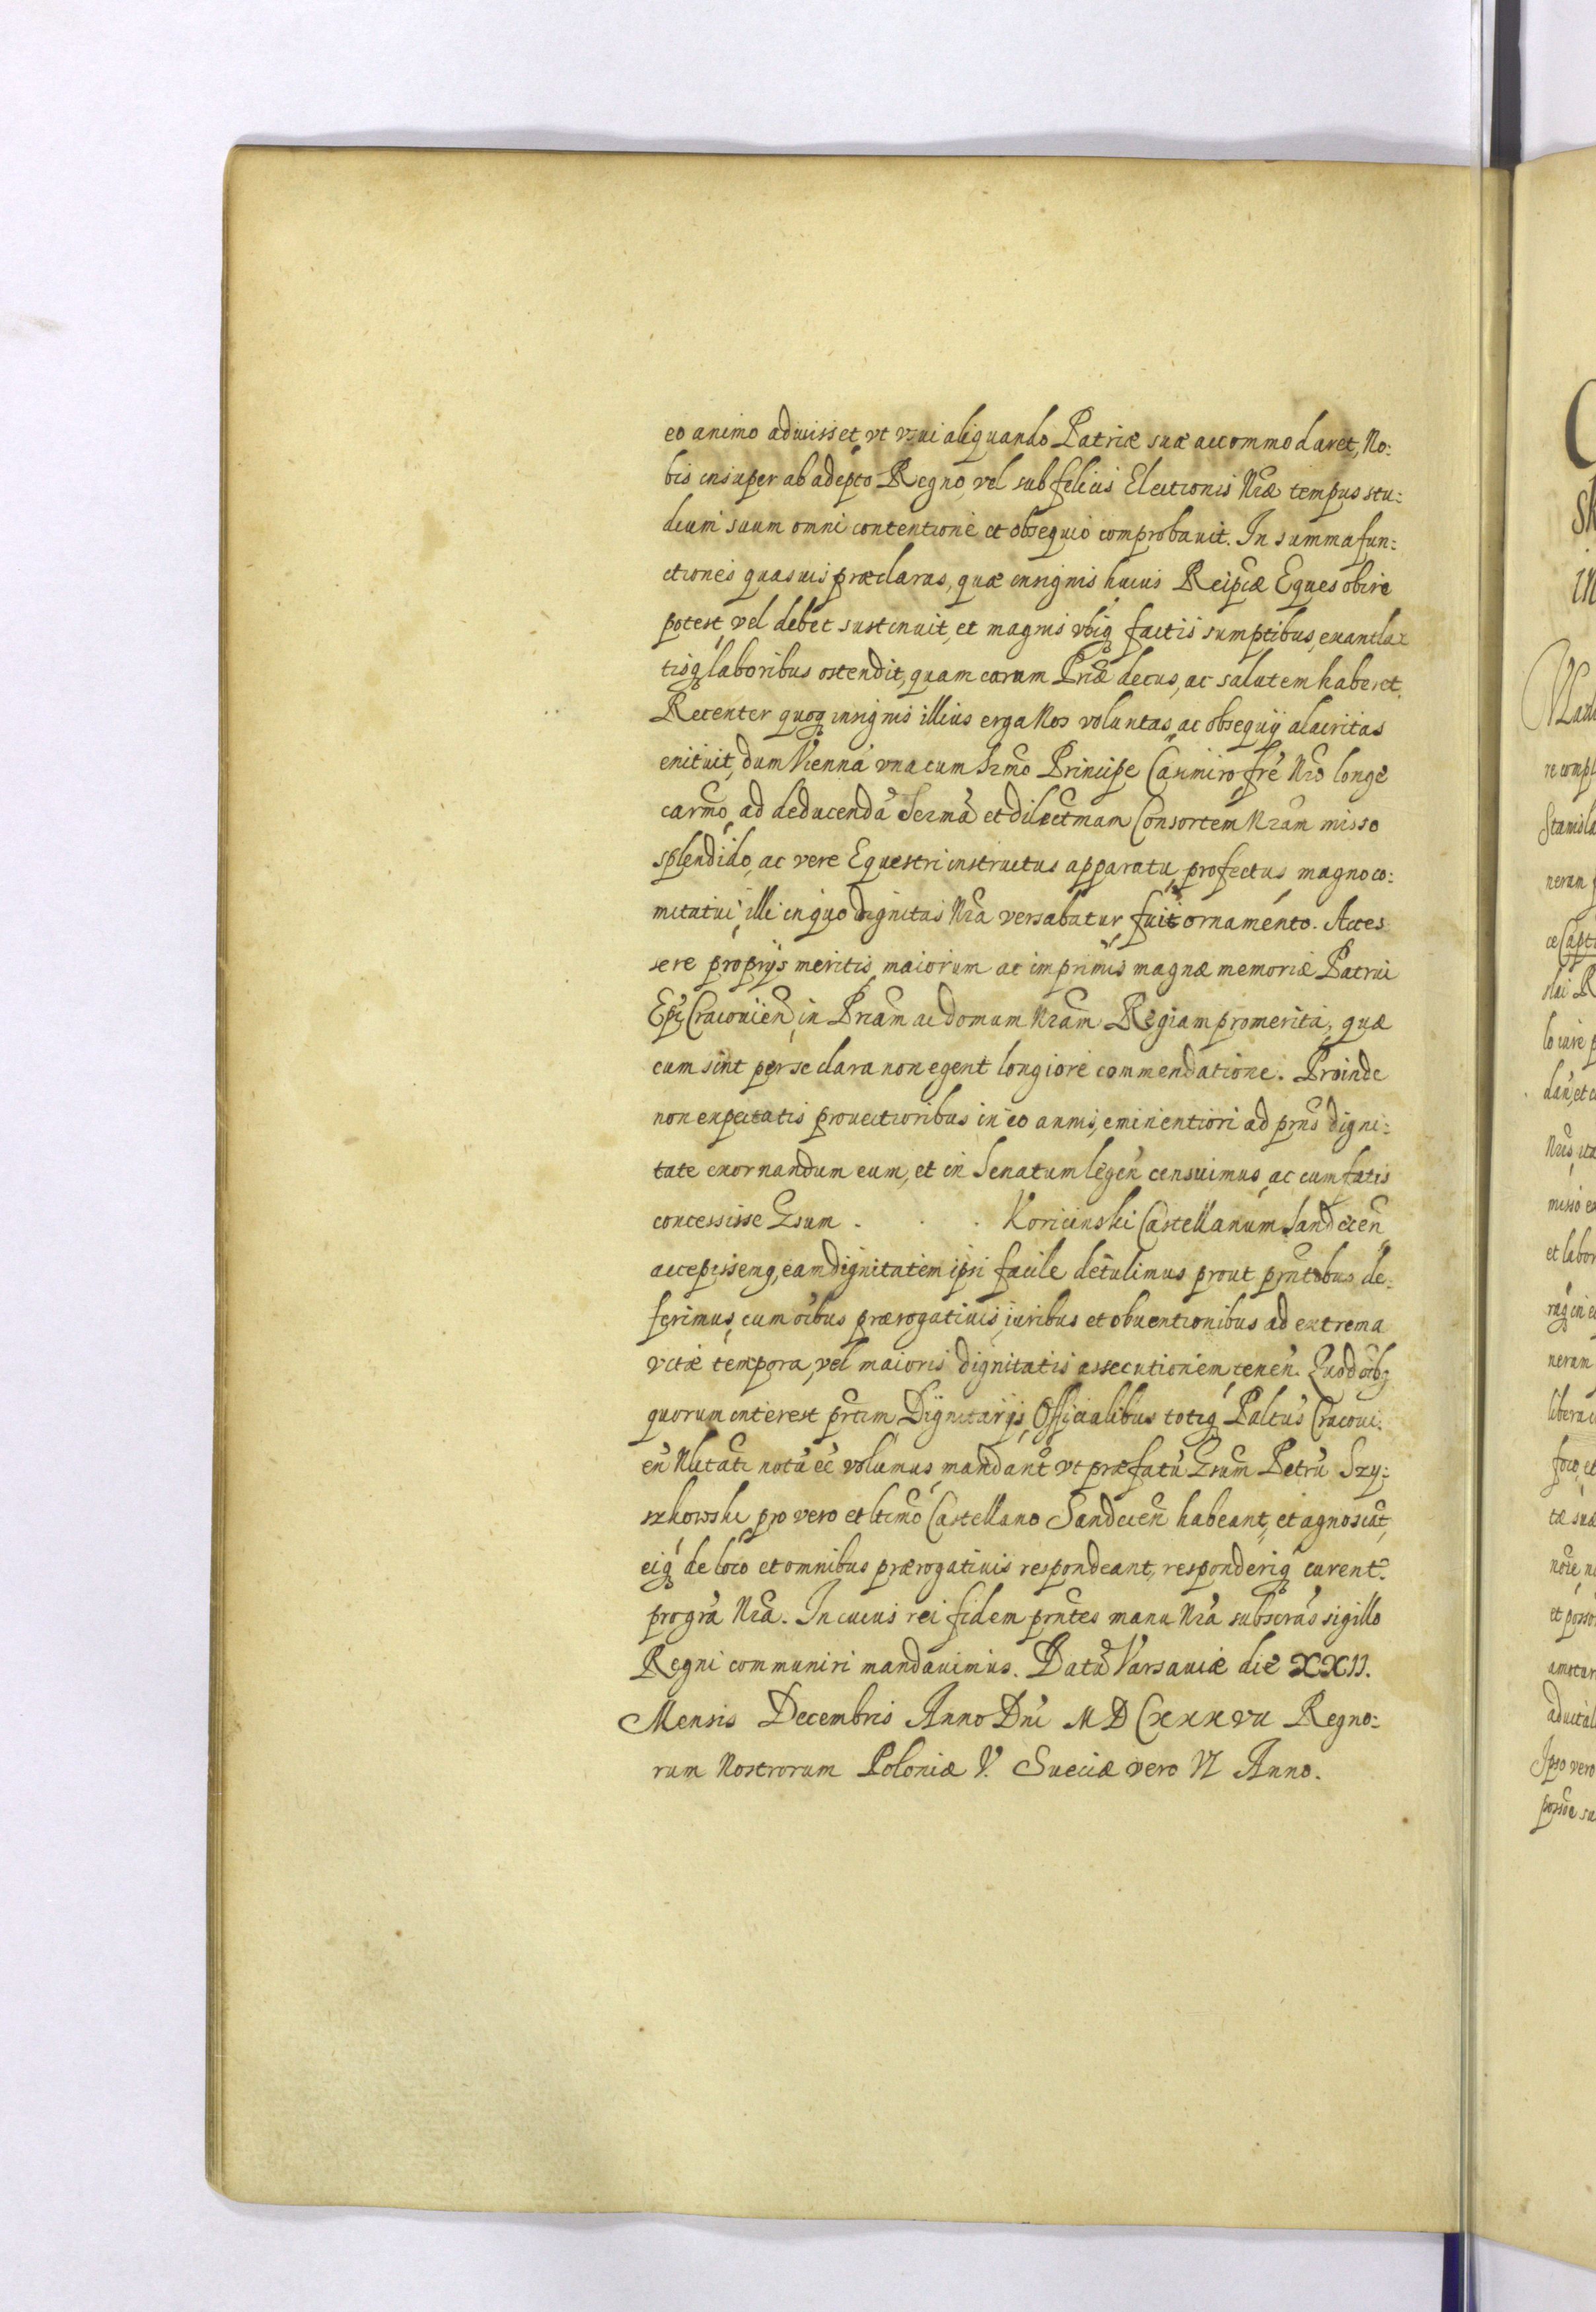 eo animo adiuisset vt vsui aliquando Patriæ suæ accommodaret, No:
bis insuper ab adepto Regno, vel sub felicis Electionis Nræ tempus stu:
dium suum omni contentione et obsequio comprobauit. In summa fun:
ctiones quasuis præclaras, quæ insignis huius Reipcæ Eques obire
potest, vel debet sustinuit, et magnis vbiq factis sumptibus, exantla:
tisq laboribus ostendit, quam caram Priæ decus, ac salutem haberet.
Recenter quoq insignis illius erga Nos voluntas, ac obsequij alacritas
enituit, dum Vienna vna cum Srmo Principe Casimiro fre Nro longe
carmo, ad deducendã Sermã et dilectmam Consortem Nram misso
splendido, ac vere Equestri instructus apparatu, profectus magno co:
mitatui illi in quo dignitas Nra versabatur fuit ornamento. Acces
sere proprijs meritis maiorum ac imprimis magnæ memoriæ Patrui
Epi Cracouien, in Priam ac domum Nram Regiam promerita, quæ
cum sint per se clara non egent longiore commendatione. Proinde
non expectatis prouectioribus in eo annis, eminentiori ad prns digni:
tate exornandum eum, et in Senatum legen censuimus, ac cum fatis
concessisse Gsum . . . Koricinski Castellanum Sandecen
accepissemq, eam dignitatem ipsi facile detulimus prout prntibus de:
ferimus, cum oibus prærogatiuis, iuribus et obuentionibus ad extrema
vitæ tempora, vel maioris dignitatis assecutionem, tenen. Quod oib9
quorum interest prtim Dignitarijs, Officialibus totiq Paltus Cracoui:
en Nlitati notũ eẽ volumus, mandant vt præfatũ Gsum Petrũ Szy:
szkowski pro vero et ltimo Castellano Sandecen habeant, et agnoscãt,
eiq de loco et omnibus prærogatiuis respondeant, responderiq curent.
pro gra Nra. In cuius rei fidem prntes manu Nra subscras sigillo
Regni communiri mandauimus. Datũ Varsauiæ die XXII.
Mensis Decembris Anno Dni MDCxxxvii Regno:
rum Nostrorum Poloniæ V. Sueciæ vero VI Anno.